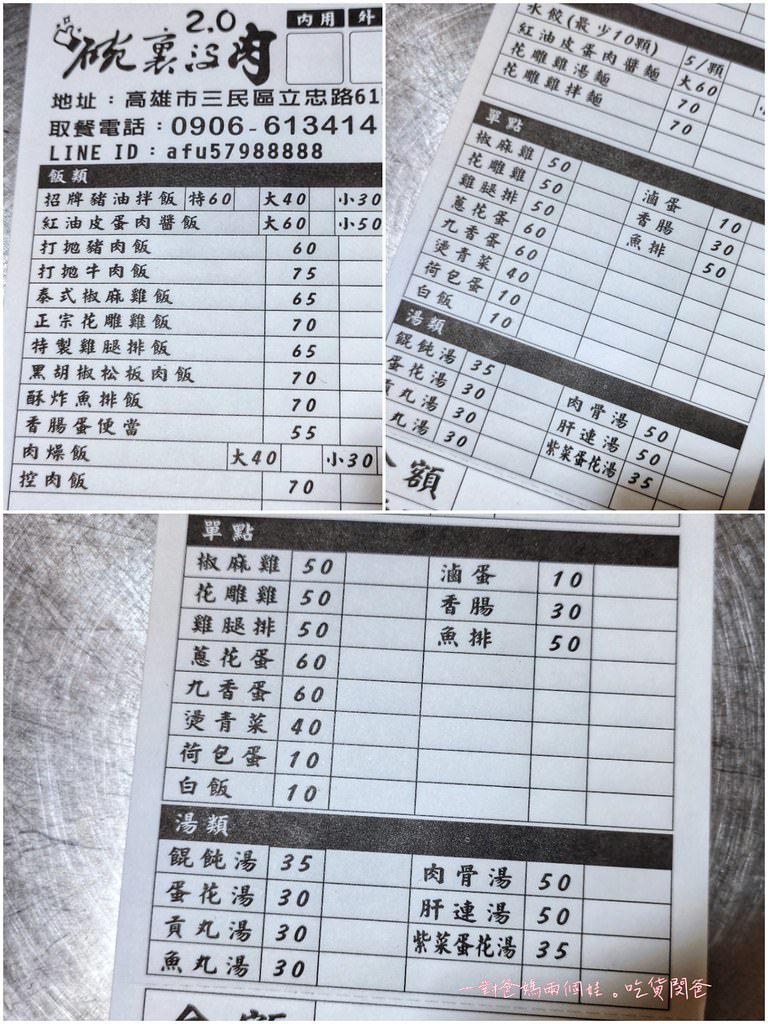 2.0
碗裏沒肉
內用 外
地址：高雄市三民區立忠路61
取餐電話：0906-613414
LINE ID：afu57988888
飯類
招牌豬油拌飯 特60 大40 小30
紅油皮蛋肉醬飯 大60 小50
打拋豬肉飯 60
打拋牛肉飯 75
泰式椒麻雞飯 65
正宗花雕雞飯 70
特製雞腿排飯 65
黑胡椒松板肉飯 70
酥炸魚排飯 70
香腸蛋便當 55
肉燥飯 大40 小30
控肉飯 70
水餃(最少10顆) 5/顆
紅油皮蛋肉醬麵 大60 小
花雕雞湯麵 70
花雕雞拌麵 70
單點
椒麻雞 50 滷蛋 10
花雕雞 50 香腸 30
雞腿排 50 魚排 50
蔥花蛋 60
九香蛋 60
燙青菜 40
荷包蛋 10
白飯 10
湯類
餛飩湯 35 肉骨湯 50
蛋花湯 30 肝連湯 50
貢丸湯 30 紫菜蛋花湯 35
丸湯 30
金額
單點
椒麻雞 50 滷蛋 10
花雕雞 50 香腸 30
雞腿排 50 魚排 50
蔥花蛋 60
九香蛋 60
燙青菜 40
荷包蛋 10
白飯 10
湯類
餛飩湯 35 肉骨湯 50
蛋花湯 30 肝連湯 50
貢丸湯 30 紫菜蛋花湯 35
魚丸湯 30
金額
一對爸媽兩個娃。吃貨閔爸